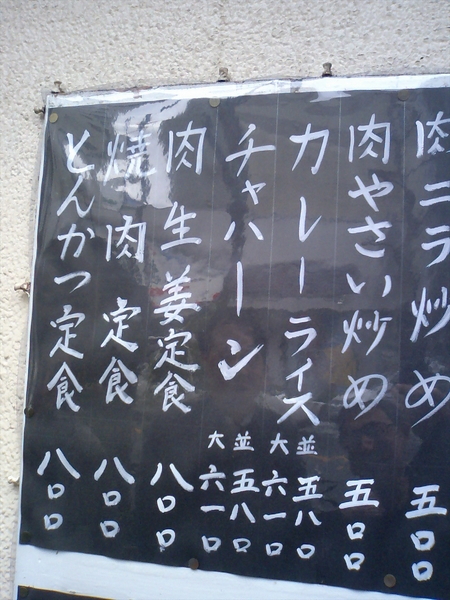 肉ニラ炒め 五〇〇
肉やさい炒め 五〇〇
カレーライス 並五八〇 大六一〇
チャハーン 並五八〇 大六一〇
肉生姜定食 八〇〇
焼肉定食 八〇〇
とんかつ定食 八〇〇